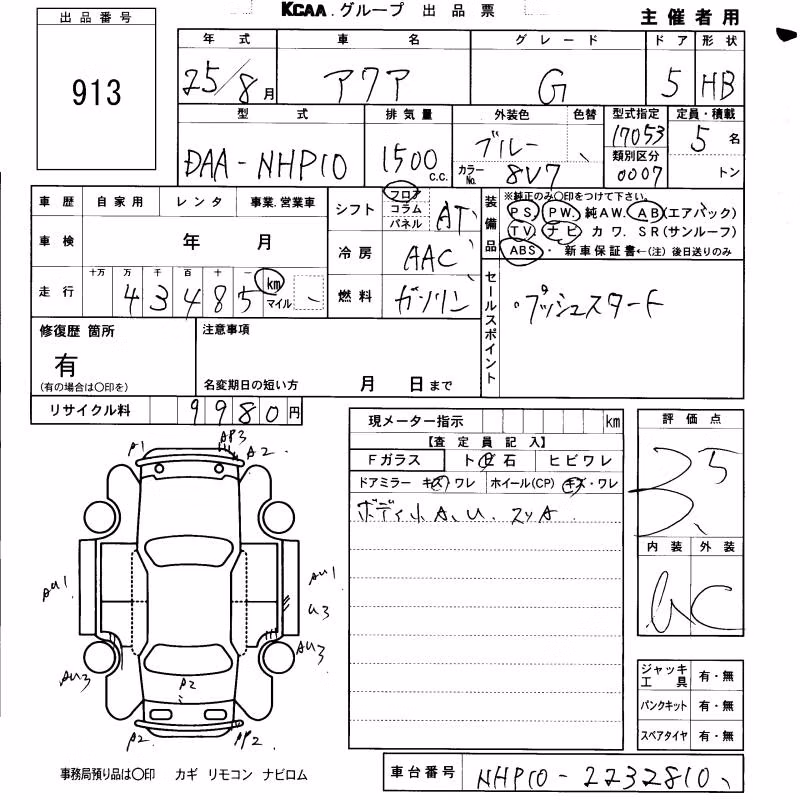 KCAA.グループ 出品票
主催者用
出品番号
913
年式 車名 グレード ドア 形状
25/8月 アクア G 5 HB
型式 排気量 外装色 色替 型式指定 定員・積載
DAA-NHP10 1500c.c. ブルー 17053 5名
カラーNo. 8V7 類別区分 0007 トン
車歴 自家用 レンタ 事業.営業車
車検 年 月
走行 十万 万 千 百 十 一 km マイル
43485
シフト フロア コラム パネル AT
冷房 AAC
燃料 ガソリン
装備品
※純正のみ○印をつけて下さい。
PS. PW. 純AW. AB(エアバック)
TV ナビ カワ. SR(サンルーフ)
ABS・ 新車保証書←(注)後日送りのみ
セールスポイント
・プッシュスタート
修復歴箇所
有
(有の場合は○印を)
注意事項
名変期日の短い方 月 日まで
リサイクル料 9980円
現メーター指示 km
【査定員記入】
Fガラス ト ビ 石 ヒビワレ
ドアミラー キズ・ワレ ホイール(CP) キズ・ワレ
ボディ小A.U. スリA
評価点
3.5
内装 外装
C
A1 AP3 A2
AU1 AU1
U3
AU3 AU3
A2
A2 AP2
ジャッキ工具 有・無
パンクキット 有・無
スペアタイヤ 有・無
事務局預り品は○印 カギ リモコン ナビロム
車台番号 NHP10-2232810